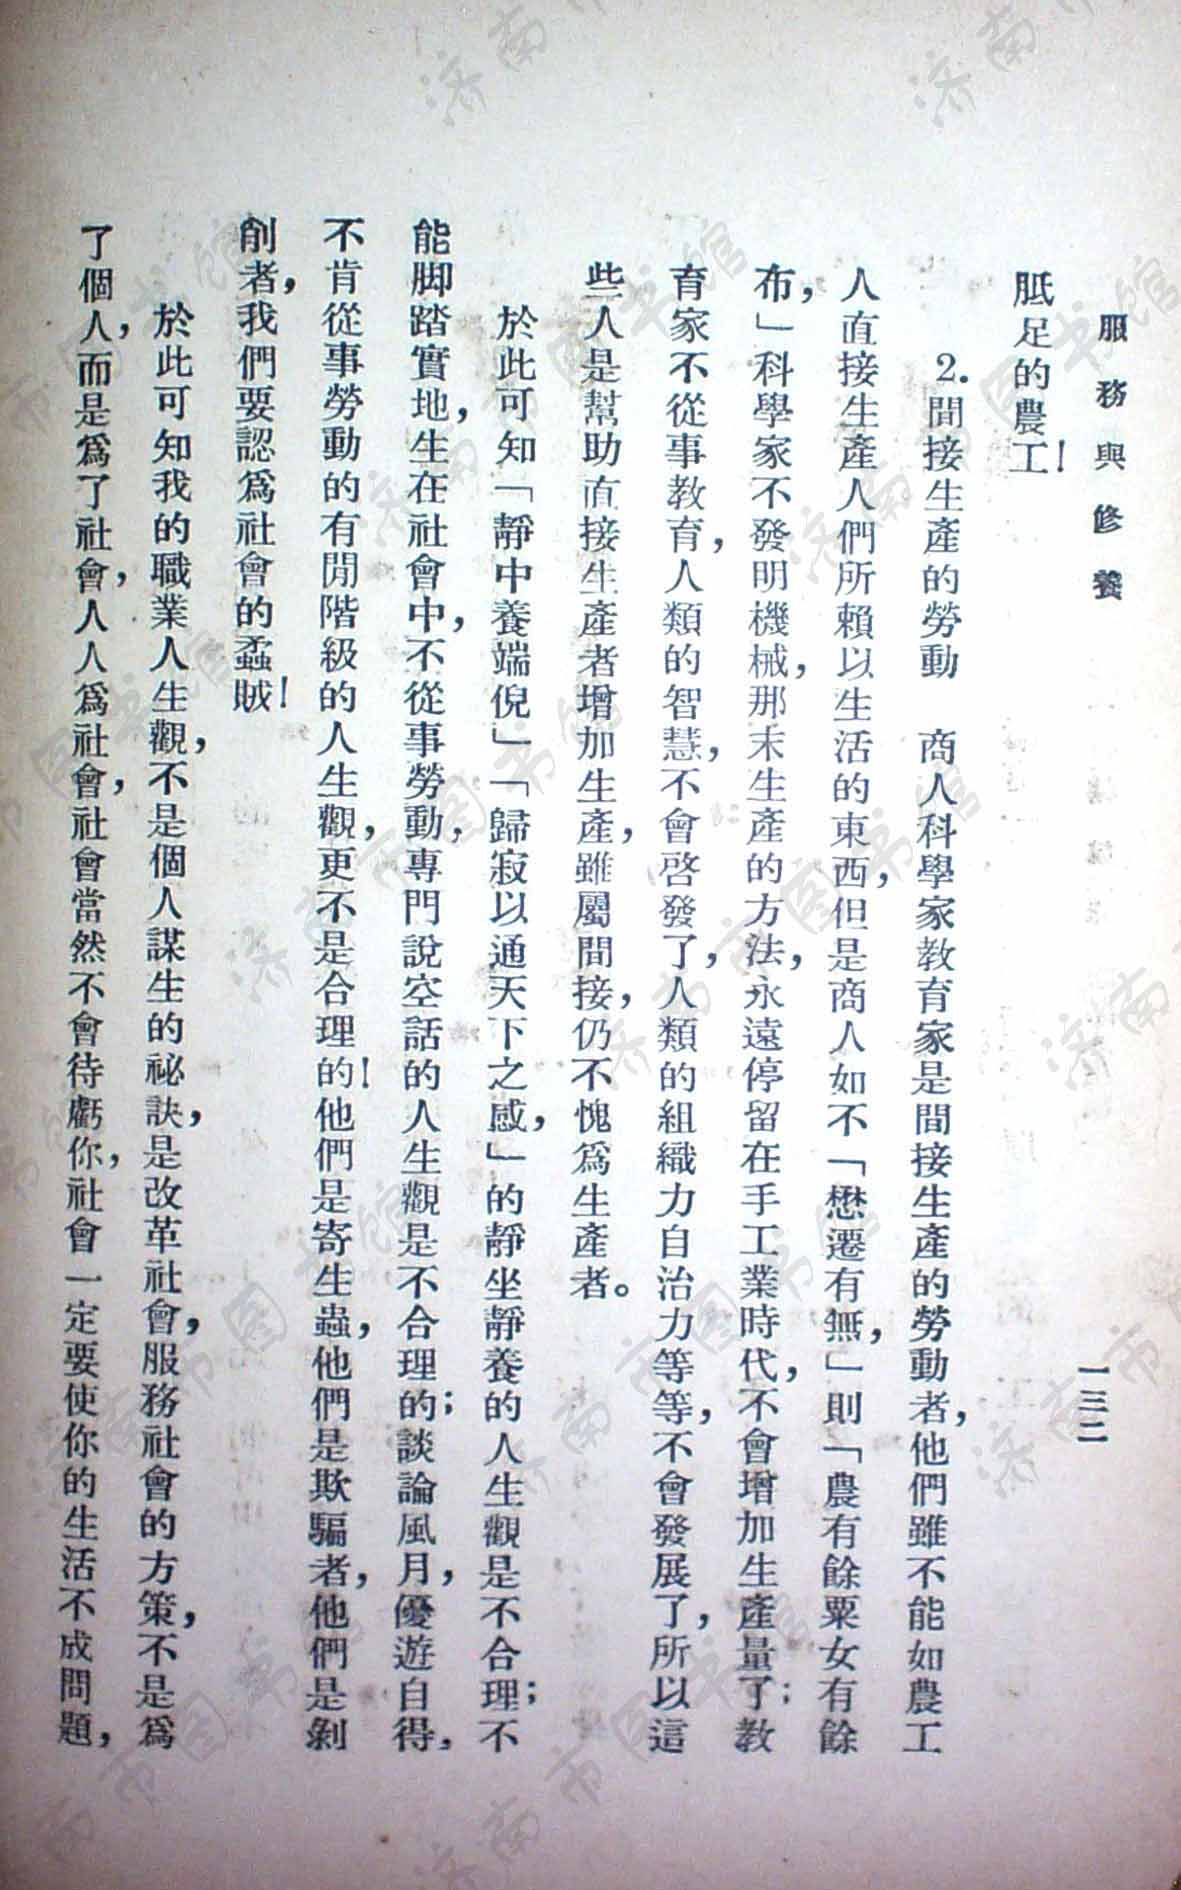 服務與修養
一三二
胝足的農工！
2.間接生產的勞動　商人科學家教育家是間接生產的勞動者，他們雖不能如農工
人直接生產人們所賴以生活的東西，但是商人如不「懋遷有無，」則「農有餘粟女有餘
布，」科學家不發明機械，那末生產的方法，永遠停留在手工業時代，不會增加生產量了；教
育家不從事教育，人類的智慧，不會啓發了，人類的組織力自治力等等，不會發展了，所以這
些人是幫助直接生產者增加生產，雖屬間接，仍不愧爲生產者。
於此可知「靜中養端倪」「歸寂以通天下之感，」的靜坐靜養的人生觀是不合理；不
能脚踏實地，生在社會中，不從事勞動，專門說空話的人生觀是不合理的；談論風月，優遊自得，
不肯從事勞動的有閒階級的人生觀，更不是合理的！他們是寄生蟲，他們是欺騙者，他們是剝
削者，我們要認爲社會的蟊賊！
於此可知我的職業人生觀，不是個人謀生的祕訣，是改革社會，服務社會的方策，不是爲
了個人，而是爲了社會，人人爲社會，社會當然不會待虧你，社會一定要使你的生活不成問題，
济南市图书馆